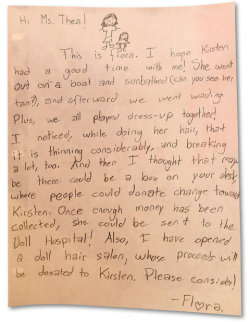 Hi, Ms. Thea!
This is Flora. I hope Kirsten
had a good time with me! She went
out on a boat and sunbathed (can you see her
tan?), and afterward we went wading.
Plus, we all played dress-up together!
I noticed, while doing her hair, that
it is thinning considerably, and breaking
a lot, too. And then I thought that may
be there could be a box on your desk,
where people could donate change toward
Kirsten. Once enough money has been
collected, she could be sent to the
Doll Hospital! Also, I have opened
a doll hair salon, whose proceeds will
be donated to Kirsten. Please consider!
-Flora.